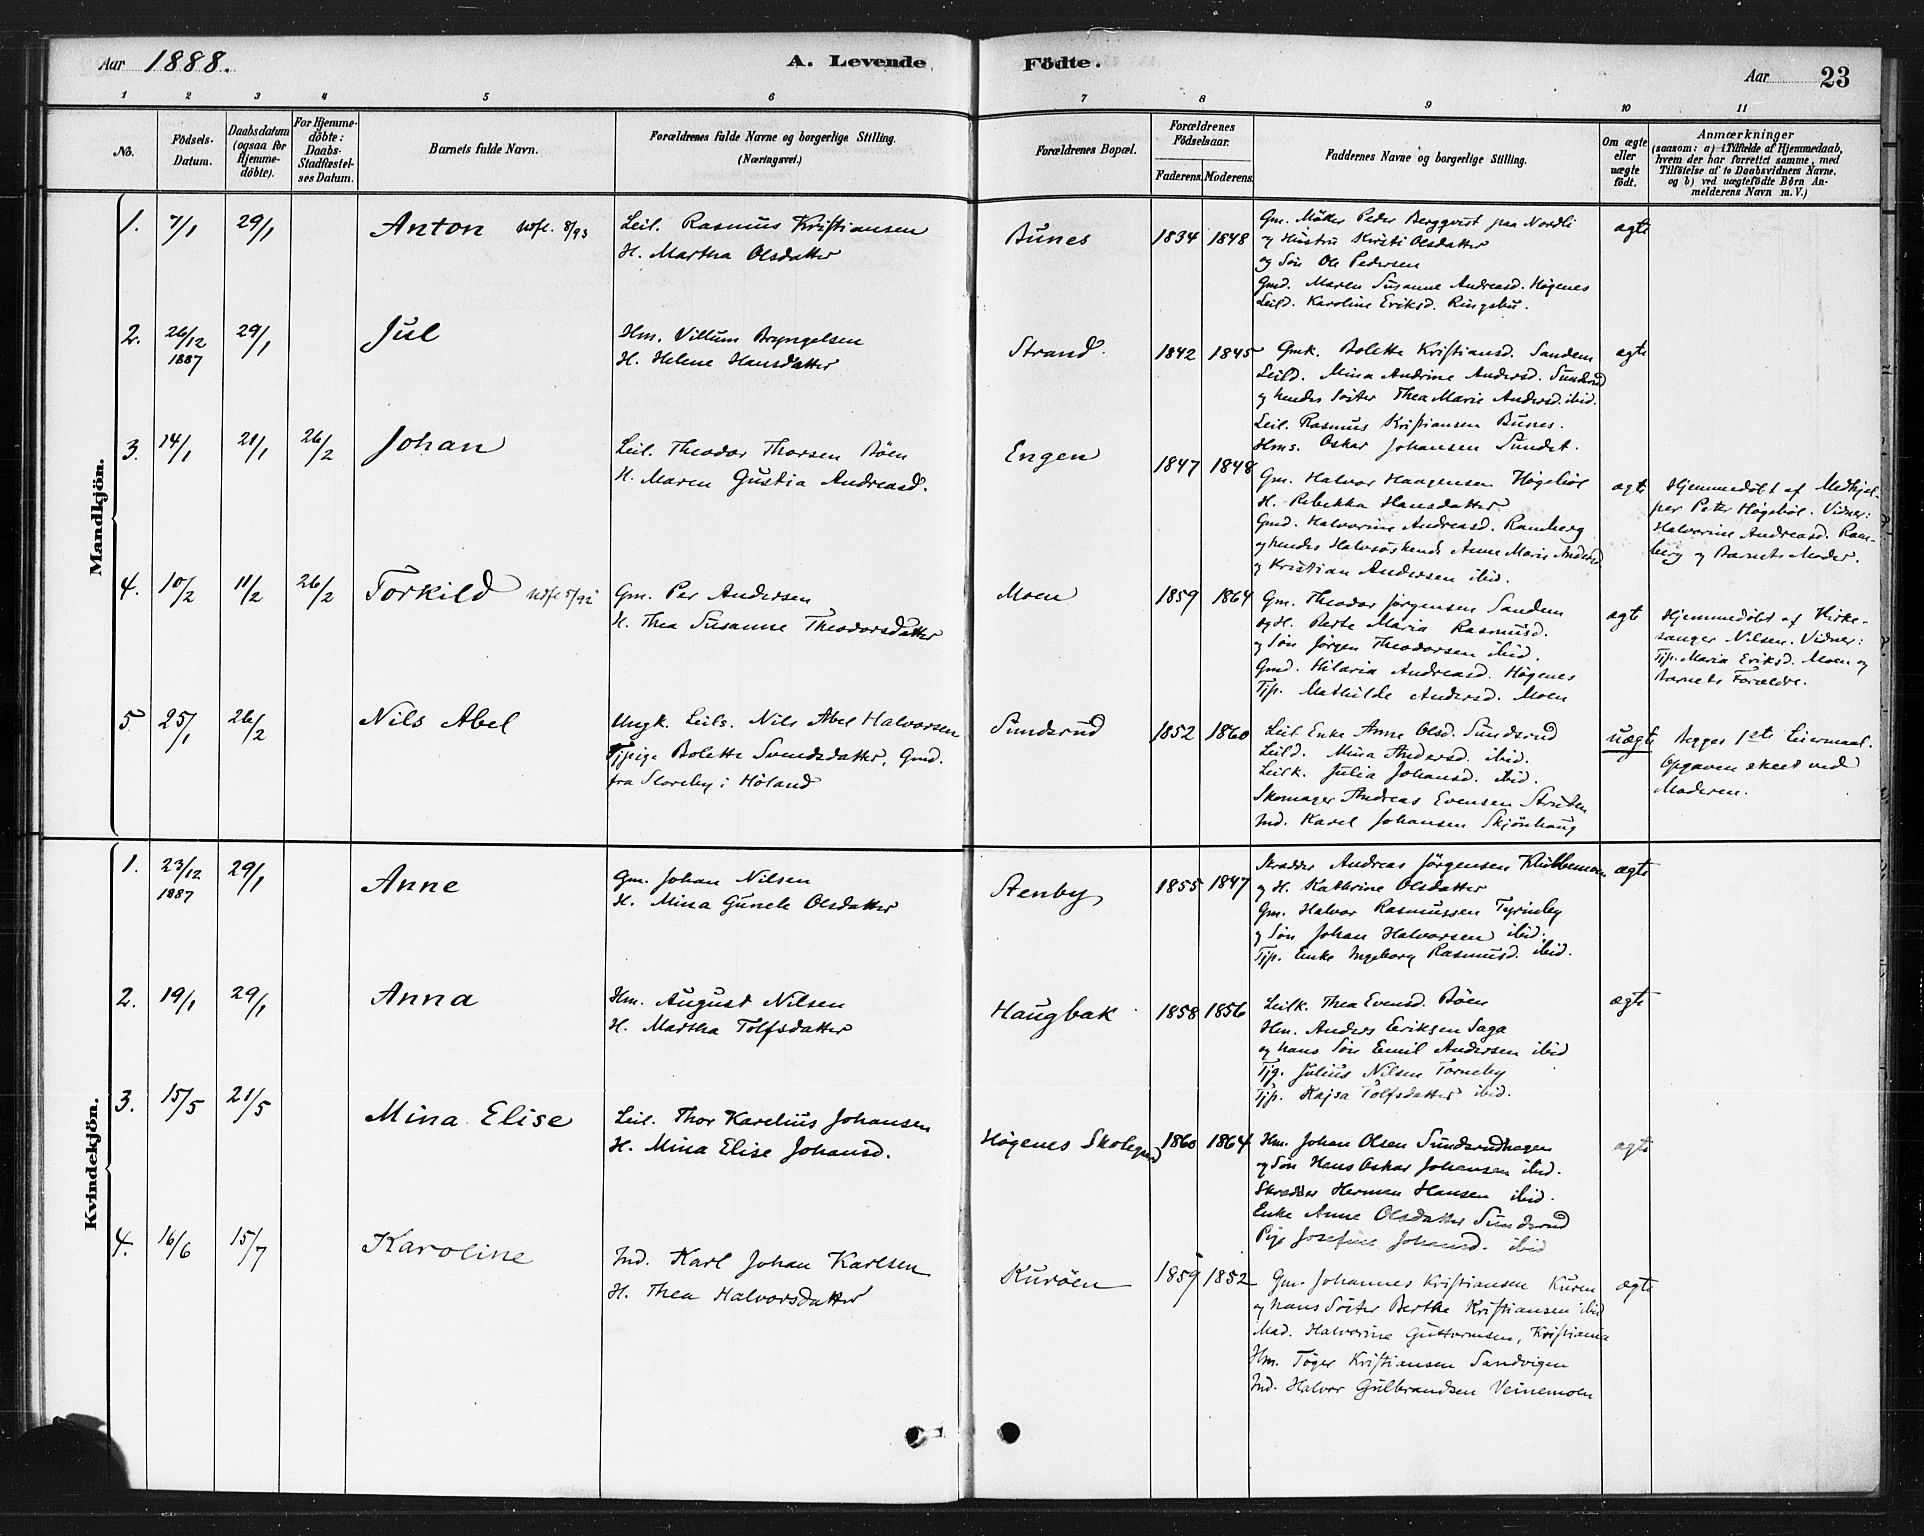 Aar 1888. A. Levende Födte. Aar 23
1 2 3 4 5 6 7 8 9 10 11
No.
Födsels-Datum.
Daabsdatum (ogsaa for Hjemmedöbte).
For Hjemmedöbte: Daabs-Stadfæstelses Datum.
Barnets fulde Navn.
Forældrenes fulde Navne og borgerlige Stilling.
(Næringsvei.)
Forældrenes Bopæl.
Forældrenes Födselsaar.
Faderens. Moderens.
Faddernes Navne og borgerlige Stilling.
Om ægte eller uægte födt.
Anmærkninger
(saasom: a) i Tilfælde af Hjemmedaab,
hvem der har forrettet samme, med
Tilföielse af to Daabsvidners Navne,
og b) ved uægtefödte Börn An-
melderens Navn m. V.)
Mandkjön.
1. 7/1 29/1 Anton Udfl. 8/93
Leil. Rasmus Kristiansen
H. Martha Olsdatter
Bunes 1834 1848
Gm. Møller Peder Bergqvist paa Nordli
og Hustru Kirsti Olsdatter
og Søn Ole Pedersen
Gmd. Maren Susanne Andreasd. Høgenes
Leild. Karoline Eriksd. Ringsbu.
ægte
2. 26/12 1887 29/1 Jul
Hm. Villum Bryngelsen
H. Helene Hansdatter
Strand. 1842 1845
Gmk. Bolette Kristiansd. Sandem
Leild. Mina Andrine Andersd. Sundsrud
og hendes Søster Thea Marie Andersd. ibid.
Leil. Rasmus Kristiansen Bunes.
Hms. Oskar Johansen Sundet.
ægte
3. 14/1 21/1 26/2 Johan
Leil. Theodor Thorsen Böen
H. Maren Gustia Andreasd.
Engen 1847 1848
Gm. Halvor Haagensen Høgebøl
H. Rebekka Hansdatter
Gmd. Halvorine Andreasd. Ramberg
og hendes Halvsøskende Anne Marie Andersd
og Kristian Andersen ibid.
ægte
Hjemmedøbt af Medhjel-
per Peter Høgebøl. Vidner:
Halvorine Andreasd. Ram-
berg og Barnets Moder.
4. 10/2 11/2 26/2 Torkild Udfl 8/92
Gm. Per Andersen
H. Thea Susanne Theodorsdatter
Moen 1859 1864
Gm. Theodor Jørgensen Sandem
og H. Berte Maria Rasmusd.
og Søn Jørgen Theodorsen ibid.
Gmd. Hilaria Andreasd. Høgenes
Tjp. Mathilde Andersd. Moen
ægte
Hjemmedøbt af Kirke-
sanger Nilsen. Vidner:
Tjp. Maria Eriksd. Moen og
Barnets Forældre.
5 25/1 26/2 Nils Abel
Ungk. Leils. Nils Abel Halvorsen
Tjpige Bolette Svendsdatter, Gmd.
fra Storeby i Høland
Sundsrud 1852 1860
Leil Enke Anne Olsd. Sundsrud
Leild. Mina Andersd. ibid.
Leilk. Julia Johansd. ibid.
Skomager Andreas Evensen Struten
Ind. Karel Johansen Skjönhaug
uægte
Begges 1ste Leiermaal.
Opgaven skeet ved
Moderen.
Kvindekjön.
1. 23/12 1887 29/1 Anne
Gm. Johan Nilsen
H. Mina Gunele Olsdatter
Stenby 1855 1847
Skrædder Andreas Jörgensen Klubbemoen
og H. Kathrine Olsdatter
Gm. Halvor Rasmussen Tyrineby
og Søn Johan Halvorsen ibid.
Tjp. Enke Ingeborg Rasmusd. ibid.
ægte
2. 19/1 29/1 Anna
Hm. August Nilsen
H. Martha Tolfsdatter
Haugbak 1858 1856
Leilk. Thea Evensd. Böen
Hm. Anders Eriksen Saga
og hans Søn Emil Andersen ibid
Tjg. Julius Nilsen Torneby
Tjp. Kajsa Tolfsdatter ibid.
ægte
3. 15/5 21/5 Mina Elise
Leil. Thor Karelius Johansen
H. Mina Elise Johansd.
Høgenes Skolegaard 1860 1864
Hm. Johan Olsen Sundsrudhagen
og Søn Hans Oskar Johansen ibid.
Skrædder Herman Hansen ibid.
Enke Anne Olsdatter Sundsrud
Pige Josefine Johansd. ibid
ægte
4. 16/6 15/7 Karoline
Ind. Karl Johan Karlsen
H. Thea Halvorsdatter
Kuröen 1859 1852
Gm. Johannes Kristiansen Kuren
og hans Søster Berthe Kristiansen ibid
Mad. Halvorine Guttormsen, Kristiania
Hm. Töger Kristiansen Sandvigen
Ind. Halvor Gulbrandsen Veinemoen
ægte